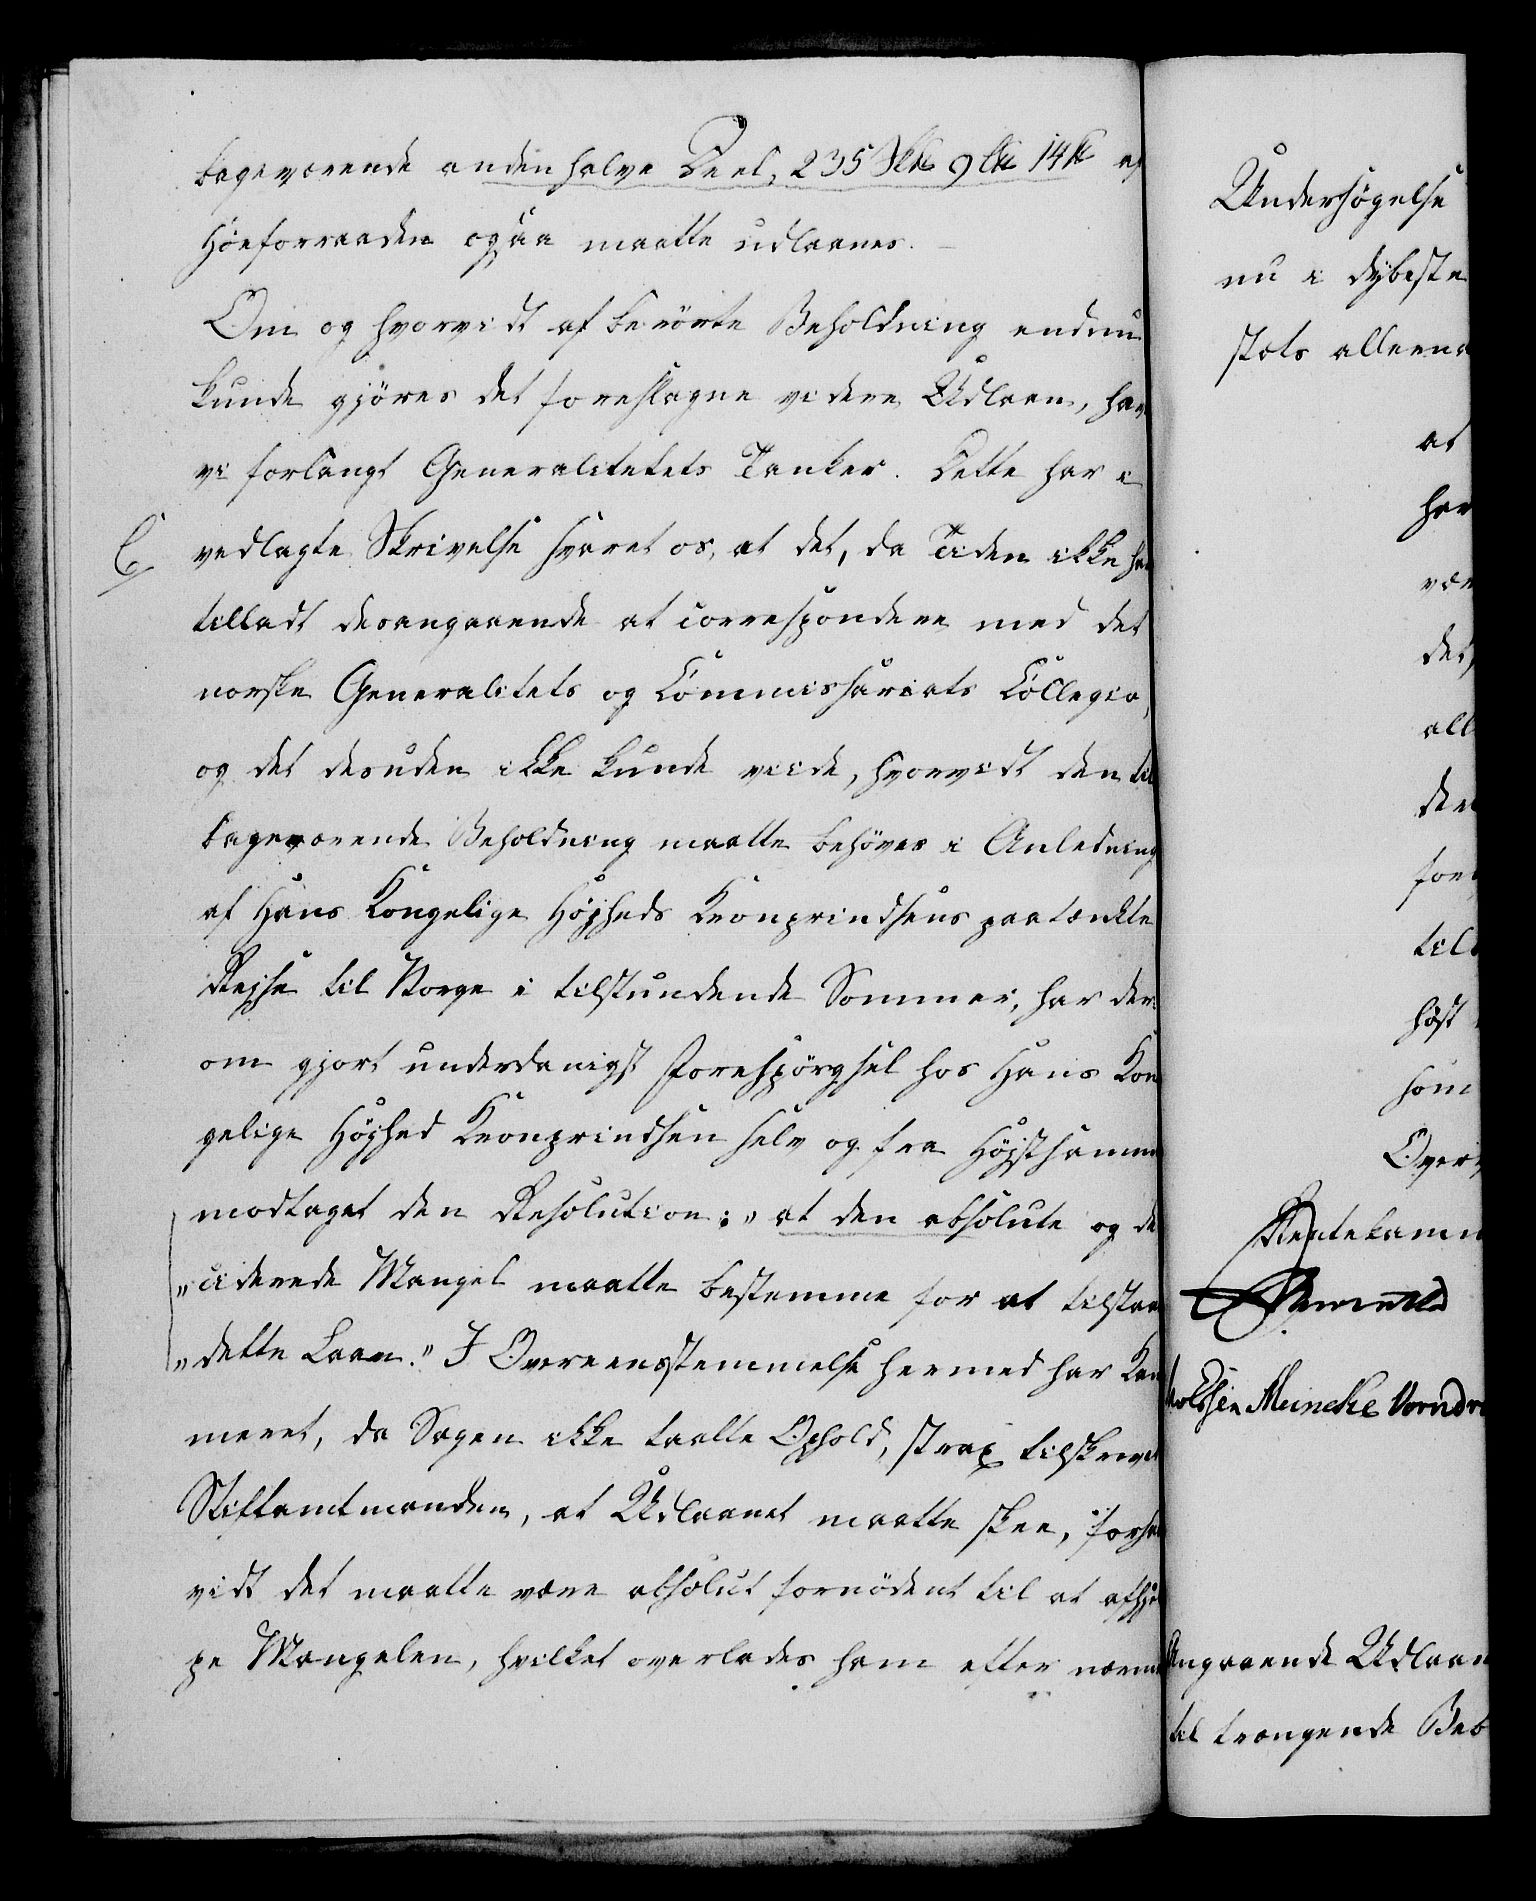 bageværende anden halve Deel, 235 Sk℔ 9 L℔ 14 ℔ af
Høeforraaden ogsaa maatte udlaanes. –
Om og hvorvidt af berörte Beholdning endnu
kunde gjöres det foreslagne videre Udlaan, hav
vi forlangt Generalitetets Tanker. Dette har i
C. vedlagte Skrivelse svaret os, at det, da Tiden ikke har
tilladt desangaaende at correspondere med det
norske Generalitets og Commissariats Collegio,
og det desuden ikke kunde viide, hvorvidt den til
bageværende Beholdning maatte behöves i Anledning
af Hans Kongelige Höjheds Kronprindsens paatænkte
Rejse til Norge i tilstundende Sommer, har der
om gjort underdanigst Forespörgsel hos Hans Kon
gelige Höjhed Kronprindsen selv og fra Höjstsamme
modtaget den Resolution: „at den absolute og de
„ciderede Mangel maatte bestemme for at tilstaa
„dette Laan." I Overeensstemmelse hermed har Kam
meret, da Sagen ikke taalte Ophold, strax tilskrevet
Stiftamtmanden, at Udlaanet maatte skee, forsaa
vidt det maatte være absolut fornödent til at afhjel
pe Mangelen, hvilket overlades ham efter nærme
Undersögelse
nu i dybeste
stots alleena
at
har
vær
det,
all
der
for
till
höst
som
Over
Rentekamm
Meincke Vornd
Angaaende Udlaan
til trængende Beb